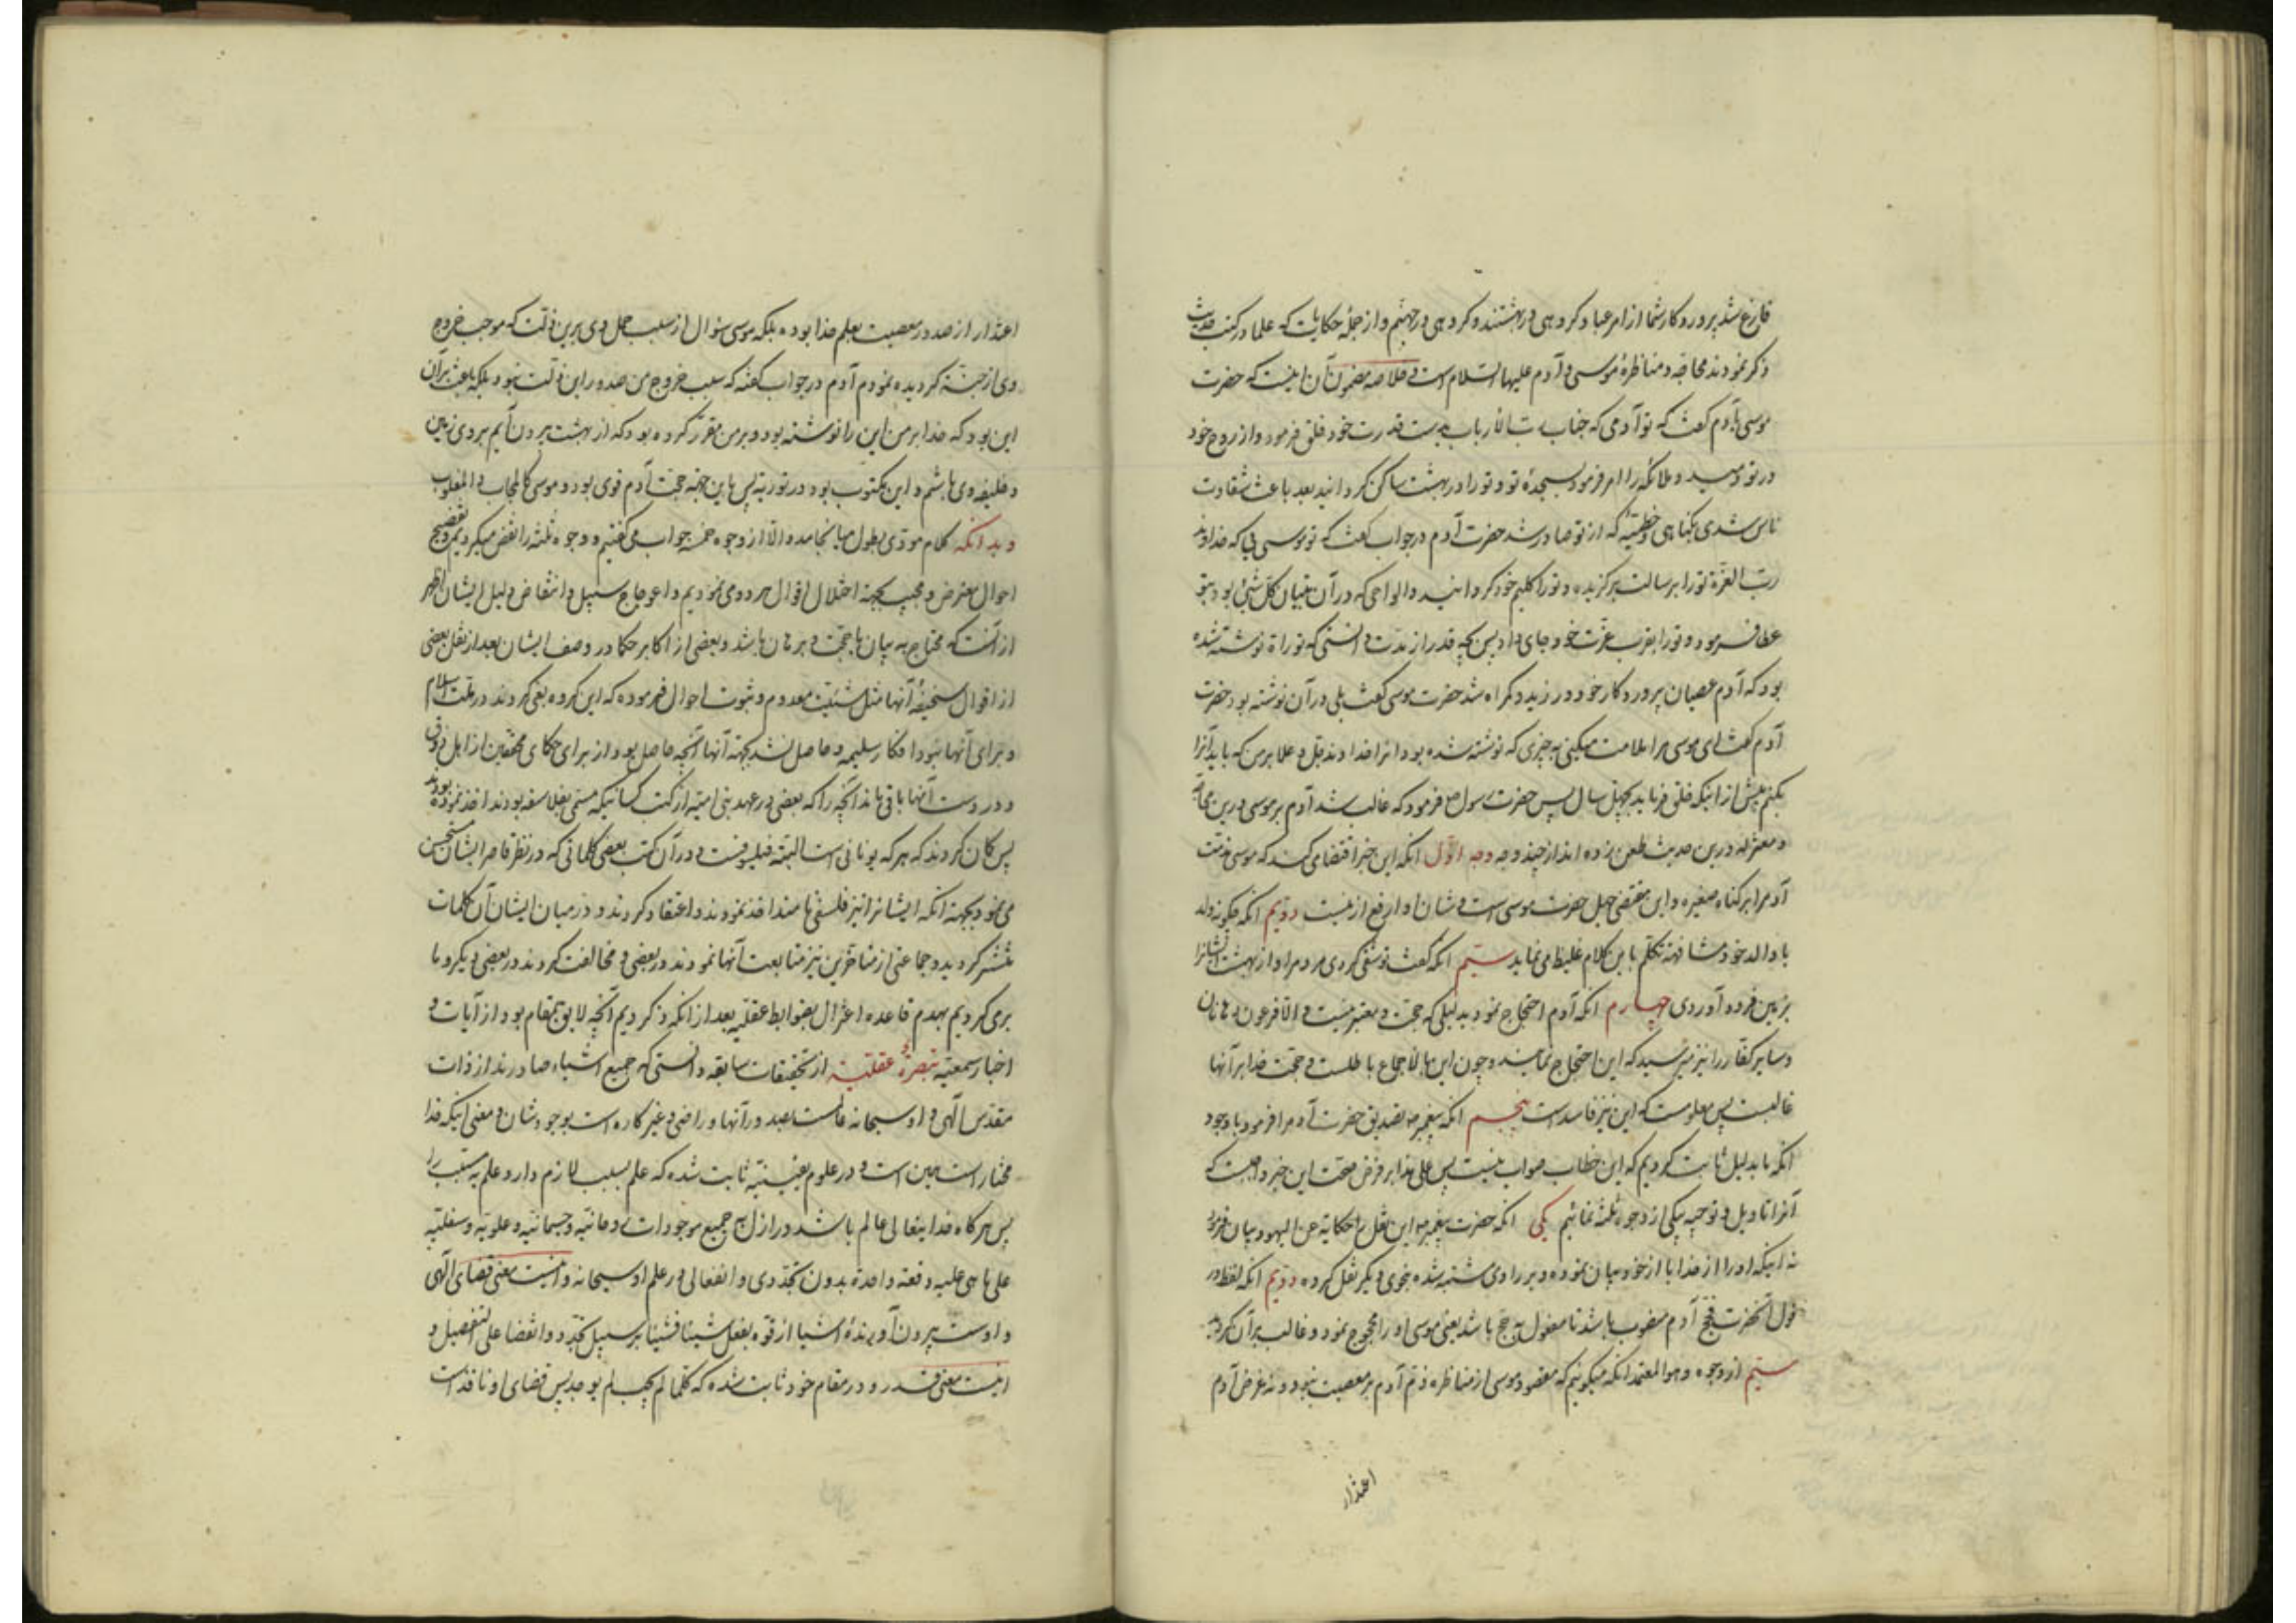 فارغ شد پروردکار شما از امر عباد کروهی در بهشتند و کروهی در جهنم و از جملهٔ حکایات که علما در کتب حدیث
ذکر نمودند محاجه و مناظرهٔ موسی و آدم علیهما السلام است و خلاصه مضمون آن اینست که حضرت
موسی بآدم کفت که تو آدمی که جناب رب الارباب بدست قدرت خود خلق فرمود و از روح خود
در تو دمید و ملائکه را امر فرمود بسجدهٔ تو و تو را در بهشت ساکن کردانید بعد باعث شقاوت
ناس شدی بکناهی و خطیئه که از تو صادر شد حضرت آدم در جواب کفت که تو موسی که خداوند
رب العزة تو را برسالت برکزیده و تو را کلیم خود کردانید و الواحی که در آن تبیان کل شیئ بود بتو
عطا فرمود و تو را بقرب عزت خود جای داد پس بچه قدر از مدت دانستی که توراة نوشته شده
بود که آدم عصیان پروردکار خود ورزید و کمراه شد حضرت موسی کفت بلی در آن نوشته بود حضرت
آدم کفت ای موسی مرا ملامت میکنی به چیزی که نوشته شده بود انرا خداوند جل و علا بر من که باید آنرا
بکنم پیش از اینکه خلق فرماید بچهل سال پس حضرت رسول ص فرمود که غالب شد آدم بر موسی درین محاجه
و معتزله درین حدیث طعن زده اند از چند وجه وجه اول انکه این خبر اقتضا می کند که موسی مذمت
آدم را بر کناه صغیره و این مقتضی جهل حضرت موسی است و شان او ارفع ازینست دویم انکه چکونه ولد
با والد خود مشافهة تکلم باین کلام غلیظ می نماید سیم انکه کفت تو شقی کردی مردم را و از بهشت ایشانرا
بزمین فرود آوردی چهارم انکه آدم احتجاج نمود بدلیلی که حجت و معتبر نیست و الا فرعون و هامان
و سایر کفار را نیز میرسید که این احتجاج نمایند و چون این بالاجماع باطلست و حجت خدا بر آنها
غالبست پس معلومست که این نیز فاسد است پنجم انکه پیغمبر ص تصدیق حضرت آدم را فرمود با وجود
انکه ما بدلیل ثابت کردیم که این خطاب صواب نیست پس علی هذا بر فرض صحت این خبر واجبست که
آنرا تاویل و توجیه بیکی از وجوه ثلثه نمائیم یکی انکه حضرت پیغمبر ص این نقل را حکایة عن الیهود بیان فرمود
نه اینکه او را از خدا یا از خود بیان نموده و بر راوی مشتبه شده بنحوی دیکر نقل کرده دویم انکه لفظ در
قول آنحضرت فحج آدم منصوب باشد تا مفعول به حج باشد یعنی موسی او را محجوج نمود و غالب بر آن کردید
سیم از وجوه و هو المعتمد انکه میکوئیم که مقصود موسی از مناظره ذم آدم بر معصیت نبود و نه غرض آدم
اعتذار
اعتذار از صدور معصیت بعلم خدا بوده بلکه موسی سؤال از سبب حمل وی برین ذلت که موجب خروج
وی از جنة کردیده نمودم آدم در جواب کفته که سبب خروج من صدور این ذلت نبود بلکه باعث بر آن
این بود که خدا بر من این را نوشته بود و بر من مقرر کرده بود که از بهشت بیرون آیم بر وی زمین
و خلیفه وی باشم و این مکتوب بود در توریة پس باین جهة حجت آدم قوی بود و موسی کالمجاب و المغلوب
و بدانکه کلام مودی بطول میانجامد و الا از وجوه خمسه جواب می کفتیم و وجوه ثلثه را نقض میکردیم و تفضیح
احوال معترض و مجیب بجهة اختلال اقوال هر دو می نمودیم و اعوجاج سبیل و انتقاض دلیل ایشان اظهر
از آنست که محتاج به بیان یا حجت و برهان باشد و بعضی از اکابر حکما در وصف ایشان بعد از نقل بعضی
از اقوال سخیفهٔ آنها مثل شیئیت معدوم و ثبوت احوال فرموده که این کروه بغی کردند در ملت اسلام
و برای آنها نبود افکار سلیمه و حاصل نشد بجهة آنها آنچه حاصل بود از برای حکمای محققین از اهل ذوق
و در دست آنها باقی ماند آنچه را که بعضی در عهد بنی امیه از کتب کسانیکه مسمی بفلاسفه بودند اخذ نموده بودند
پس کمان کردند که هر که یونانی است البته فیلسوفست و در آن کتب بعضی کلماتی که در نظر قاصر ایشان مستحسن
می نمود بجهة انکه ایشانرا نیز فلسفی نامند اخذ نمودند و اعتقاد کردند و در میان ایشان آن کلمات
منتشر کردید و جماعتی از متاخرین نیز متابعت آنها نمودند در بعضی و مخالفت کردند در بعضی دیکر و ما
بر می کردیم بهدم قاعده اعتزال بضوابط عقلیه بعد از انکه ذکر کردیم آنچه لایق بمقام بود از آیات و
اخبار سمعیه تبصرة عقلیة از تحقیقات سابقه دانستی که جمیع اشیاء صادرند از ذات
مقدس آلهی و او سبحانه عالمست بصدور آنها و راضی و غیر کاره است بوجودشان و معنی اینکه خدا
مختار است همین است و در علوم یقینیه ثابت شده که علم بسبب لازم دارد علم به مسبب را
پس هر کاه خدایتعالی عالم باشد در ازل به جمیع موجودات روحانیه و جسمانیه و علویه و سفلیه
علی ما هی علیه دفعة واحدة بدون تجددی و انفعالی در علم او سبحانه و اینست معنی قضای آلهی
و اوست بیرون آورندهٔ اشیا از قوه بفعل شیئا فشیئا بر سبیل تجدد و انقضا علی التفصیل و
اینست معنی قدر و در مقام خود ثابت شده که کلما لم یجب لم یوجد پس قضای او نافذ است